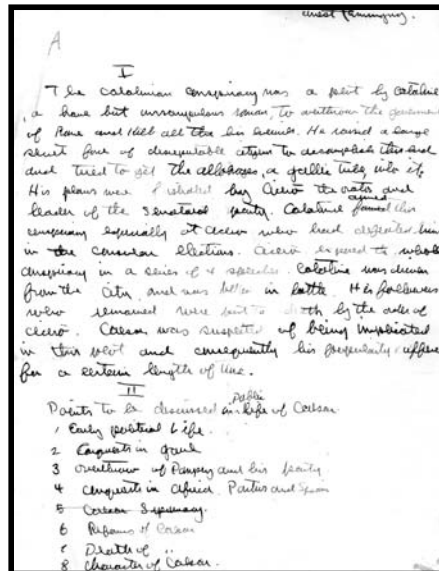 A
I
The Catalinian conspiracy was a plot by Catiline
, a brave but unscrupulous roman, to overthrow the government
of Rome and kill all the his enemies. He raised a large
secret force of disreputable citizens to accomplish this end
and tried to get the allobroges, a gallic tribe,
His plans were by Cicero the orator and
leader of the Senatorial party. Catiline aimed this
conspiracy especially at Cicero who had defeated him
in the consular elections. Cicero exposed the whole
conspiracy in a series of 4 speeches. Catiline was driven
from the City and was killed in battle. His followers
who remained were put to death by the order of
Cicero. Caesar was suspected of being implicated
in this plot and consequently his popularity suffered
for a certain length of time.
II
Points to be discussed in Public life of Caesar
1 Early political Life.
2 Conquests in gaul
3 overthrow of Pompey and his party
4 Conquests in Africa, and Spain
5 Caesar Supremacy.
6 Reforms of Caesar
7 Death of "
8 Character of Caesar.